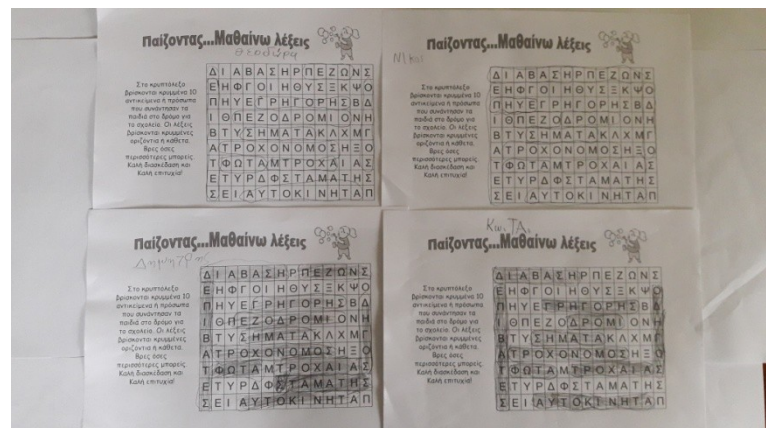 Παίζοντας...Μαθαίνω λέξεις
Θεοδώρα
Στο κρυπτόλεξο
βρίσκονται κρυμμένα 10
αντικείμενα ή πρόσωπα
που συνάντησαν τα
παιδιά στο δρόμο για
το σχολείο. Οι λέξεις
βρίσκονται κρυμμένες
οριζόντια ή κάθετα.
Βρες όσες
περισσότερες μπορείς.
Καλή διασκέδαση και
Καλή επιτυχία!
Δ Ι Α Β Α Σ Η Ρ Π Ε Ζ Ω Ν Σ
Ε Η Φ Γ Ο Ι Η Θ Υ Σ Ξ Κ Ψ Ο
Π Η Υ Ε Γ Ρ Η Γ Ο Ρ Η Σ Β Δ
Ι Θ Π Ε Ζ Ο Δ Ρ Ο Μ Ι Ο Ν Η
Β Τ Υ Σ Η Μ Α Τ Α Κ Λ Χ Μ Γ
Α Τ Ρ Ο Χ Ο Ν Ο Μ Ο Σ Η Ξ Ο
Τ Φ Ω Τ Α Μ Τ Ρ Ο Χ Α Ι Α Σ
Ε Τ Υ Ρ Δ Φ Σ Τ Α Μ Α Τ Η Σ
Σ Ε Ι Α Υ Τ Ο Κ Ι Ν Η Τ Α Π
Παίζοντας...Μαθαίνω λέξεις
Στο κρυπτόλεξο
βρίσκονται κρυμμένα 10
αντικείμενα ή πρόσωπα
που συνάντησαν τα
παιδιά στο δρόμο για
το σχολείο. Οι λέξεις
βρίσκονται κρυμμένες
οριζόντια ή κάθετα.
Βρες όσες
περισσότερες μπορείς.
Καλή διασκέδαση και
Καλή επιτυχία!
Δ Ι Α Β Α Σ Η Ρ Π Ε Ζ Ω Ν Σ
Ε Η Φ Γ Ο Ι Η Θ Υ Σ Ξ Κ Ψ Ο
Π Η Υ Ε Γ Ρ Η Γ Ο Ρ Η Σ Β Δ
Ι Θ Π Ε Ζ Ο Δ Ρ Ο Μ Ι Ο Ν Η
Β Τ Υ Σ Η Μ Α Τ Α Κ Λ Χ Μ Γ
Α Τ Ρ Ο Χ Ο Ν Ο Μ Ο Σ Η Ξ Ο
Τ Φ Ω Τ Α Μ Τ Ρ Ο Χ Α Ι Α Σ
Ε Τ Υ Ρ Δ Φ Σ Τ Α Μ Α Τ Η Σ
Σ Ε Ι Α Υ Τ Ο Κ Ι Ν Η Τ Α Π
Παίζοντας...Μαθαίνω λέξεις
Στο κρυπτόλεξο
βρίσκονται κρυμμένα 10
αντικείμενα ή πρόσωπα
που συνάντησαν τα
παιδιά στο δρόμο για
το σχολείο. Οι λέξεις
βρίσκονται κρυμμένες
οριζόντια ή κάθετα.
Βρες όσες
περισσότερες μπορείς.
Καλή διασκέδαση και
Καλή επιτυχία!
Δ Ι Α Β Α Σ Η Ρ Π Ε Ζ Ω Ν Σ
Ε Η Φ Γ Ο Ι Η Θ Υ Σ Ξ Κ Ψ Ο
Π Η Υ Ε Γ Ρ Η Γ Ο Ρ Η Σ Β Δ
Ι Θ Π Ε Ζ Ο Δ Ρ Ο Μ Ι Ο Ν Η
Β Τ Υ Σ Η Μ Α Τ Α Κ Λ Χ Μ Γ
Α Τ Ρ Ο Χ Ο Ν Ο Μ Ο Σ Η Ξ Ο
Τ Φ Ω Τ Α Μ Τ Ρ Ο Χ Α Ι Α Σ
Ε Τ Υ Ρ Δ Φ Σ Τ Α Μ Α Τ Η Σ
Σ Ε Ι Α Υ Τ Ο Κ Ι Ν Η Τ Α Π
Κω.ΤΑ.
Παίζοντας...Μαθαίνω λέξεις
Στο κρυπτόλεξο
βρίσκονται κρυμμένα 10
αντικείμενα ή πρόσωπα
που συνάντησαν τα
παιδιά στο δρόμο για
το σχολείο. Οι λέξεις
βρίσκονται κρυμμένες
οριζόντια ή κάθετα.
Βρες όσες
περισσότερες μπορείς.
Καλή διασκέδαση και
Καλή επιτυχία!
Δ Ι Α Β Α Σ Η Ρ Π Ε Ζ Ω Ν Σ
Ε Η Φ Γ Ο Ι Η Θ Υ Σ Ξ Κ Ψ Ο
Π Η Υ Ε Γ Ρ Η Γ Ο Ρ Η Σ Β Δ
Ι Θ Π Ε Ζ Ο Δ Ρ Ο Μ Ι Ο Ν Η
Β Τ Υ Σ Η Μ Α Τ Α Κ Λ Χ Μ Γ
Α Τ Ρ Ο Χ Ο Ν Ο Μ Ο Σ Η Ξ Ο
Τ Φ Ω Τ Α Μ Τ Ρ Ο Χ Α Ι Α Σ
Ε Τ Υ Ρ Δ Φ Σ Τ Α Μ Α Τ Η Σ
Σ Ε Ι Α Υ Τ Ο Κ Ι Ν Η Τ Α Π